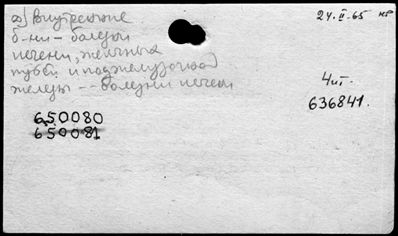 а) внутренние
24.II.65 кр
б-ни - болезни
печени, желчных
путей и поджелудочной
4 шт.
железы -- болезни печени
636841.
650080
650081